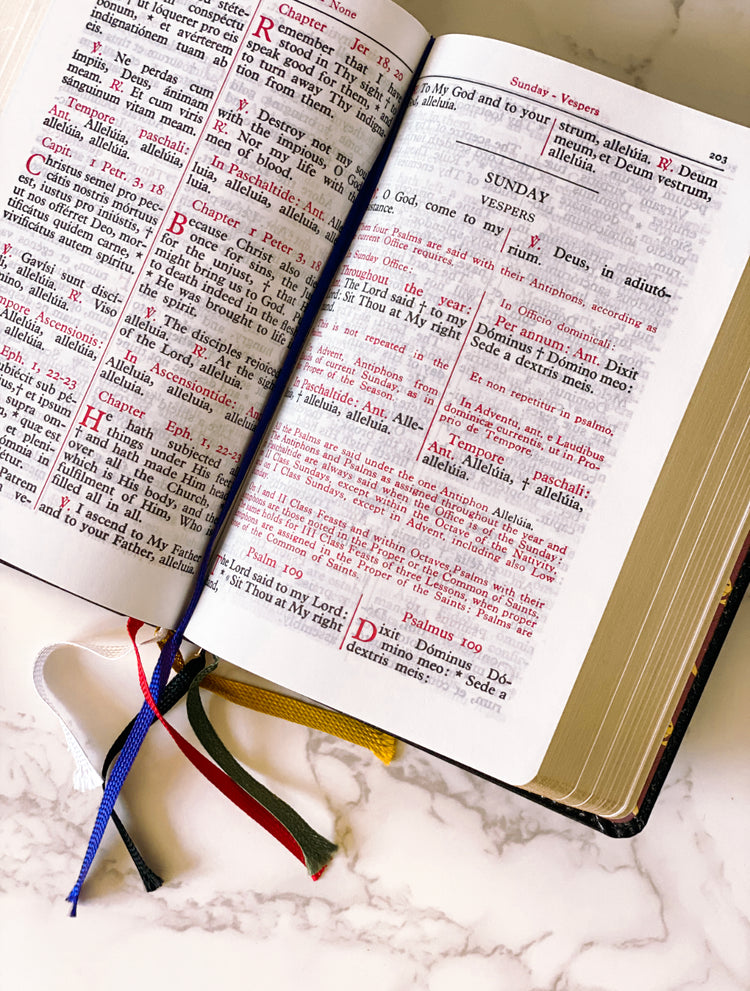 None
steté-
bonum, * et avérterem
conspéctu
ut lóquerer pro eis
indignatiónem tuam ab
eis.
℣. Ne perdas cum
ímpiis, Deus, ánimam
meam. ℟. Et cum viris
sánguinum vitam meam.
Tempore paschali:
Ant. Allelúia, allelúia,
allelúia, allelúia.
Capit. 1 Petr. 3, 18
Christus semel pro pec-
cátis nostris mórtuus
est, justus pro injústis, †
ut nos offérret Deo, mor-
tificátus quidem carne, *
vivificátus autem spíritu.
℣. Gavísi sunt discí-
puli, allelúia. ℟. Viso
allelúia.
Tempore Ascensionis:
Allelúia, allelúia,
allelúia.
Eph. 1, 22-23
subjécit sub pé-
† et ipsum
supra om-
* quæ est
et pleni-
ómnia in
Patrem
Chapter Jer 18, 20
Remember that I have
stood in Thy sight † to
speak good for them, * and
to turn away Thy indigna-
tion from them.
℣. Destroy not my soul
with the impious, O God.
℟. Nor my life with the
men of blood.
In Paschaltide: Ant. Alle-
luia, alleluia, alleluia, alle-
luia.
Chapter 1 Peter 3, 18
Because Christ also died
once for sins, the just
for the unjust, † that He
might bring us to God, put
to death indeed in the flesh
* He was brought to life
the spirit.
℣. The disciples rejoiced,
alleluia. ℟. At the sight
of the Lord, alleluia.
In Ascensiontide: Ant.
Alleluia, alleluia, alleluia,
alleluia.
Chapter Eph. 1, 22-23
He hath subjected all
things under His feet
† and hath made Him head
over all the Church,
which is His body, and the
fulfilment of Him, Who is
filled all in all.
℣. I ascend to My Father
and to your Father, alleluia.
Sunday - Vespers
203
To My God and to your
God, alleluia.
strum, allelúia. ℟. Deum
meum, et Deum vestrum,
allelúia.
SUNDAY
VESPERS
O God, come to my
℣. Deus, in adiutó-
rium.
The four Psalms are said with their Antiphons, according as
current Office requires.
Sunday Office:
Throughout the year:
Ant. The Lord said † to my
Lord: Sit Thou at My right
This is not repeated in the
Advent, Antiphons from
of current Sunday, as in
Proper of the Season.
In Paschaltide: Ant. Alle-
luia, † alleluia, alleluia.
In Officio dominicali:
Per annum: Ant. Dixit
Dóminus † Dómino meo:
Sede a dextris meis.
Et non repetitur in psalmo.
In Adventu, ant. e Laudibus
dominicæ currentis, ut in Pro-
prio de Tempore.
Tempore paschali:
Ant. Allelúia, † allelúia,
allelúia.
the Psalms are said under the one Antiphon Allelúia.
The Antiphons and Psalms as assigned throughout the year and
Paschaltide are always said when the Office is of the Sunday:
II Class Sundays, except within the Octave of the Nativity;
on I Class Sundays, except in Advent, including also Low
I and II Class Feasts and within Octaves, Psalms with their
Antiphons are those noted in the Proper or the Common of Saints.
same holds for III Class Feasts of three Lessons, when proper
Antiphons are assigned in the Proper of the Saints: Psalms are
of the Common of Saints.
Psalm 109
The Lord said to my Lord:
* Sit Thou at My right
hand,
Psalmus 109
Dixit Dóminus Dó-
mino meo: * Sede a
dextris meis: